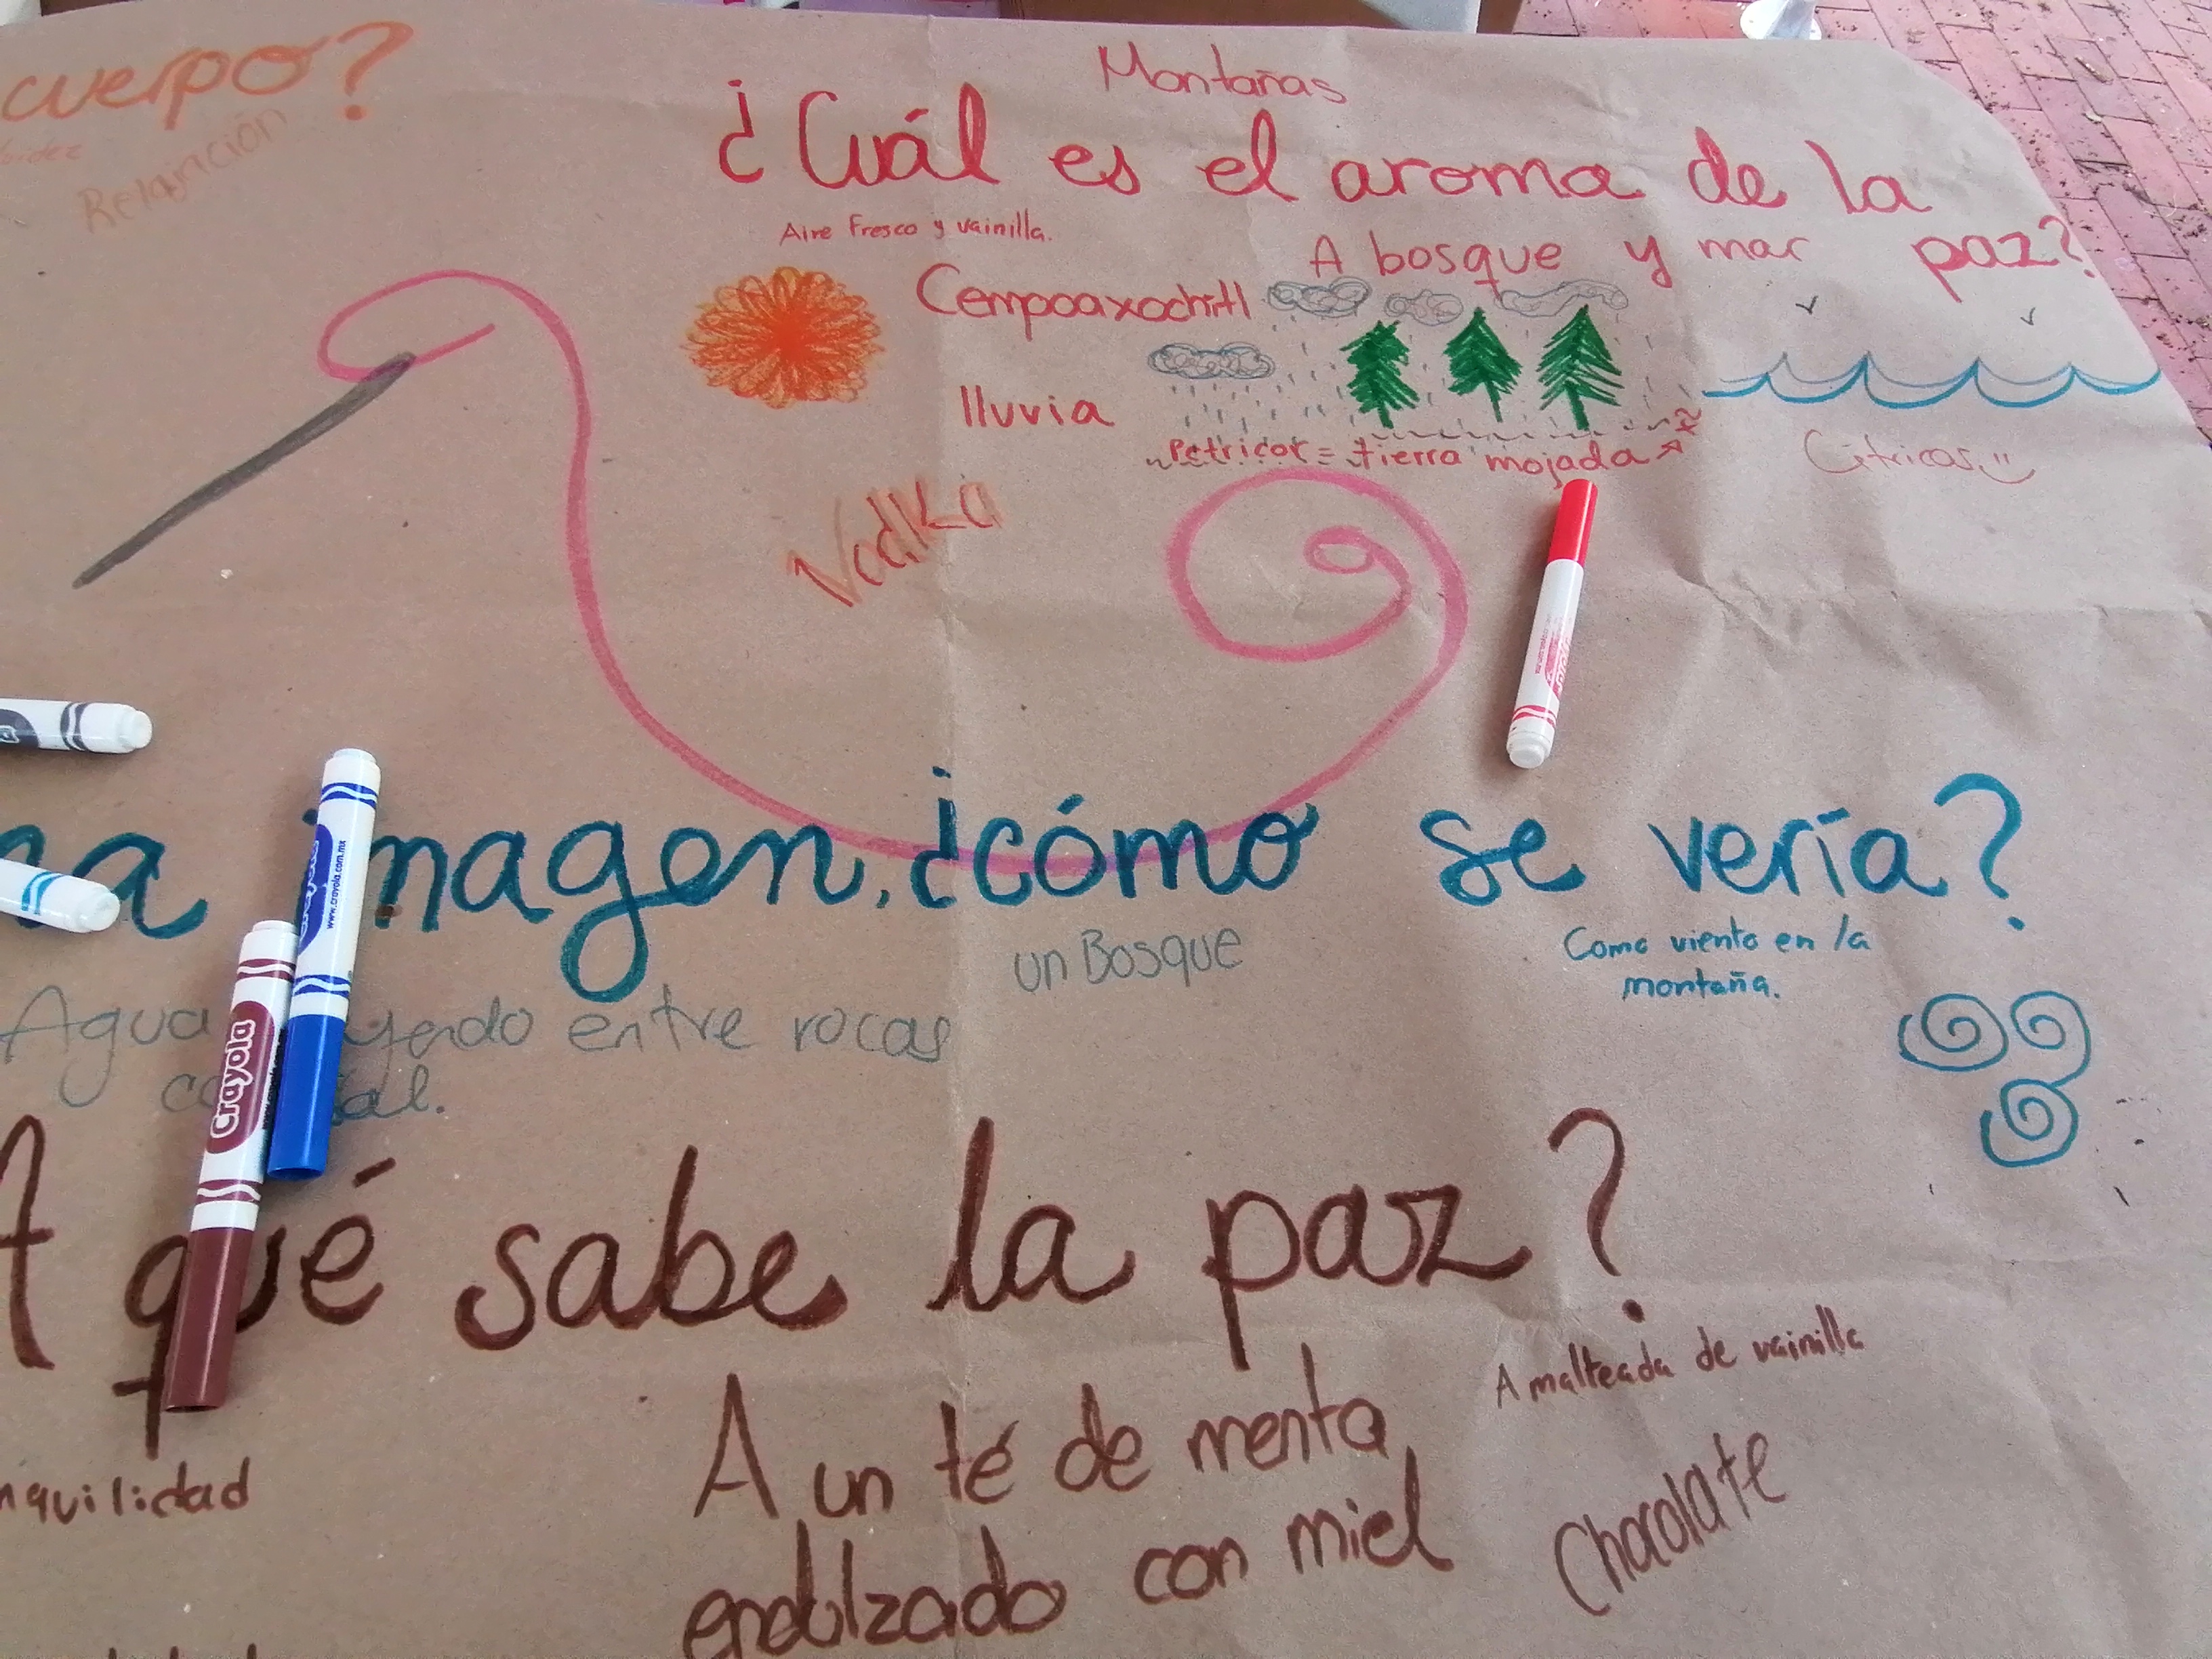 cuerpo?
Relajación
Montañas
¿Cuál es el aroma de la
paz?
Aire Fresco y vainilla.
A bosque y mar
Cempoaxochitl
lluvia
Petricor = tierra mojada
Cítricas
Vodka
imagen, ¿cómo se vería?
un Bosque
Como viento en la
montaña.
Agua yendo entre rocas
Crayola
www.crayola.com.mx
A qué sabe la paz?
A malteada de vainilla
A un té de menta
endulzado con miel
Chocolate